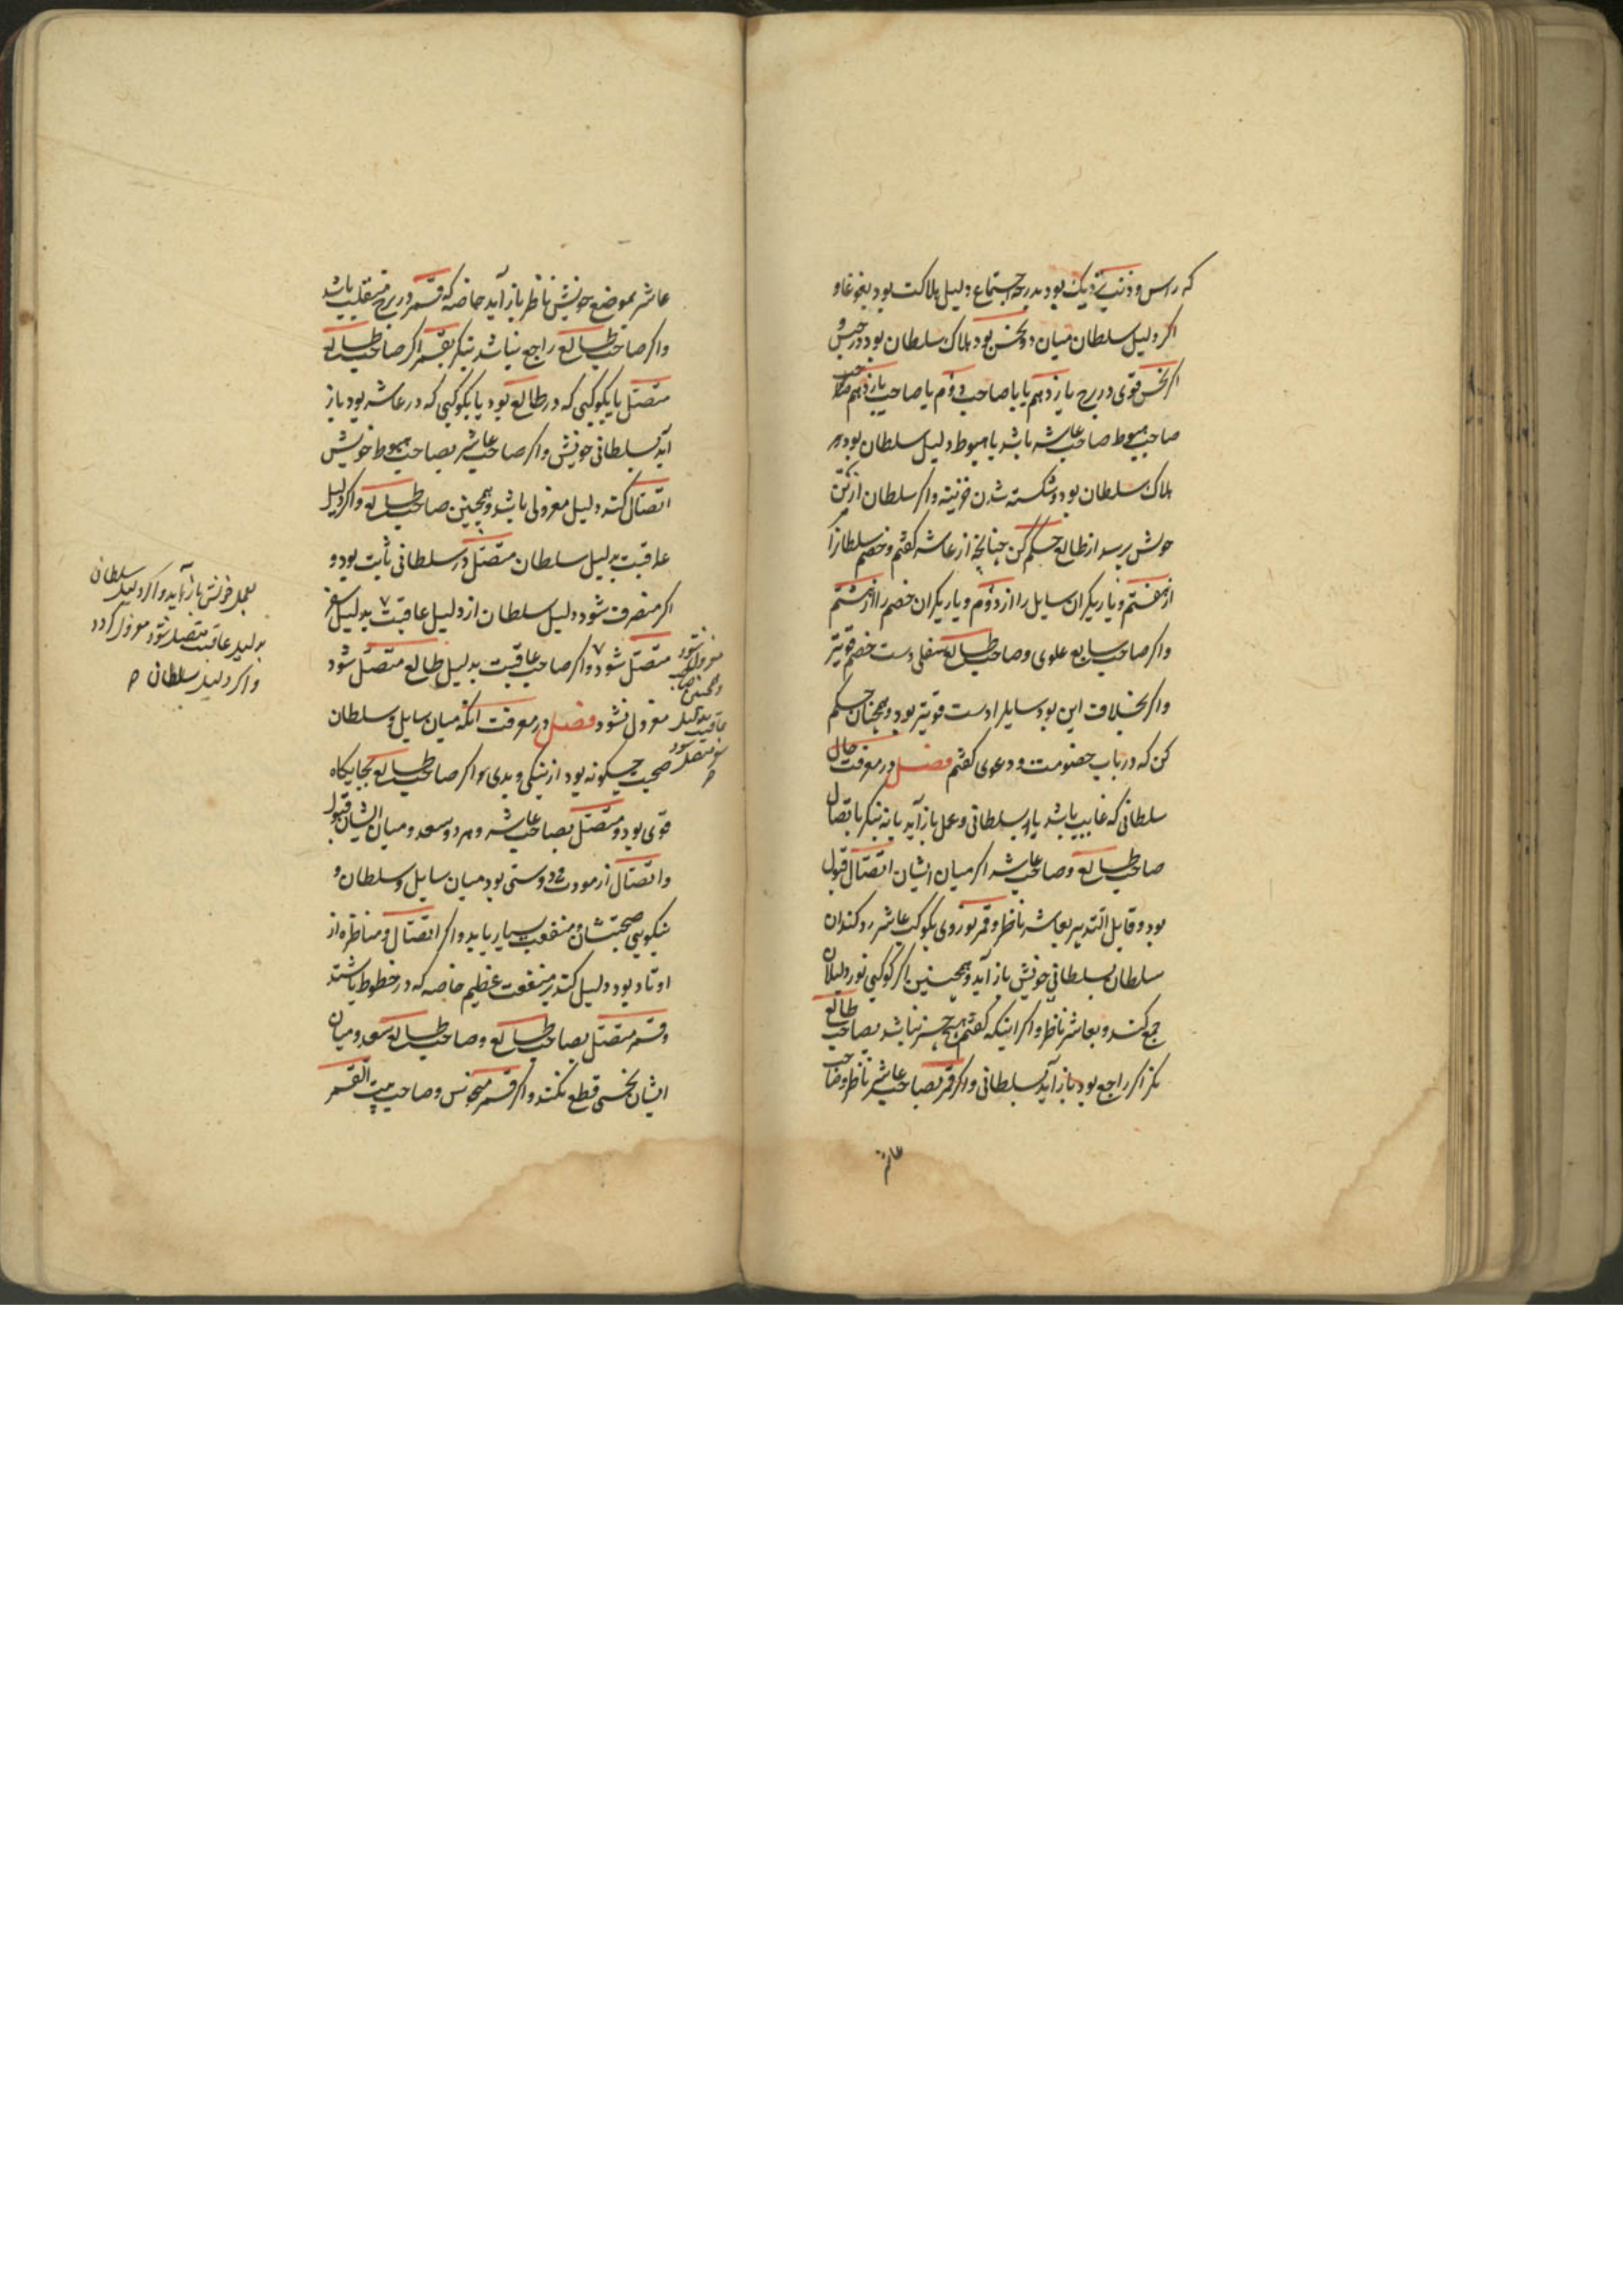 که راس و ذنب نزدیک بود بدرجه اجتماع دلیل هلاکت بود بغوغا و
اکر دلیل سلطان میان دو نحس بود هلاک سلطان بود در حبس و
اکر نحس قوی در برج یازدهم یا با صاحب دوم یا صاحب یازدهم
صاحب هبوط صاحب عاشر باشد یا هبوط دلیل سلطان بود بر
هلاک سلطان بود و شکسته شدن خزینه و اکر سلطان از تن
خویش پرسد از طالع حکم کن چنانچه از عاشر کفتم و خصم سلطانرا
از هفتم و یاریکران سایل را از دوم و یاریکران خصم را از هشتم
و اکر صاحب سابع علوی و صاحب طالع سفلی دست خصم قویتر
و اکر بخلاف این بود سایلرا دست قویتر بود و همچنان حکم
کن که در باب خصومت و دعوی کفتم فصل در معرفت حال
سلطانی که غایب باشد یا بسلطانی و عمل باز آید یا نه بنکر باتصال
صاحب طالع و صاحب عاشر اکر میان ایشان اتصال قبول
بود و قابل التدبیر بعاشر ناظر و قمر نور وی بکوکب عاشر رد کند ان
سلطان بسلطانی خویش باز آید و همچنین اکر کوکبی نور دلیلان
جمع کند و بعاشر ناظر و اکر اینکه کفتم هیچ چیز نباشد بصاحب طالع
نکر اکر راجع بود باز آید بسلطانی و اکر قمر بصاحب عاشر ناظر و صاحب
عاشر
عاشر بموضع خویش ناظر باز آید خاصه که قمر در برج منقلب باشد
و اکر صاحب طالع راجع نباشد بنکر بقمر اکر صاحب طالع
متصل با یکوکبی که در طالع بود یا بکوکبی که در عاشر بود باز
آید بسلطانی خویش و اکر صاحب عاشر بصاحب هبوط خویش
اتصال کند دلیل معزولی باشد و همچنین صاحب طالع و اکر دلیل
عاقبت بدلیل سلطان متصل در سلطانی ثابت بود و
اکر منصرف شود دلیل سلطان از دلیل عاقبت بدلیل سفر
متصل شود و اکر صاحب عاقبت بدلیل طالع متصل شود
معزول نشود فصل در معرفت انکه میان سایل و سلطان
صحبت چیکونه بود از نیکی و بدی و اکر صاحب طالع بجایکاه
قوی بود و متصل بصاحب عاشر و هر دو سعد و میان ایشان قبول
و اتصال از مودت دوستی بود میان سایل و سلطان و
نیکویی صحبتشان و منفعت بسیار یابد و اکر اتصال و مناظره از
اوتاد بود دلیل کند بر منفعت عظیم خاصه که در خطوط باشند
و قمر متصل بصاحب طالع و صاحب طالع سعد و میان
ایشان نحسی قطع نکند و اکر قمر منحوس و صاحب بیت القمر
معزول شود
و همچنین صاحب
عاقبت بدلیل
سفر متصل شود
بعمل خویش باز نیاید و اکر دلیل سلطان
بدلیل عاقبت متصل نشود معزول کردد
و اکر دلیل سلطان